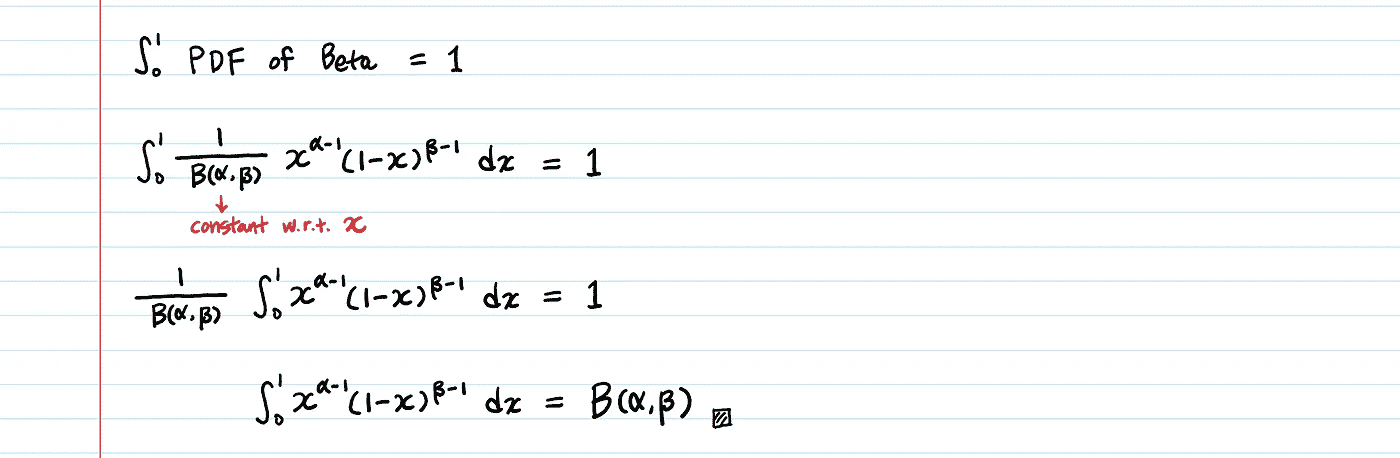 ∫₀¹ PDF of Beta = 1
∫₀¹ 1/B(α,β) x^(α-1) (1-x)^(β-1) dx = 1
↓
constant w.r.t. x
1/B(α,β) ∫₀¹ x^(α-1) (1-x)^(β-1) dx = 1
∫₀¹ x^(α-1) (1-x)^(β-1) dx = B(α,β)